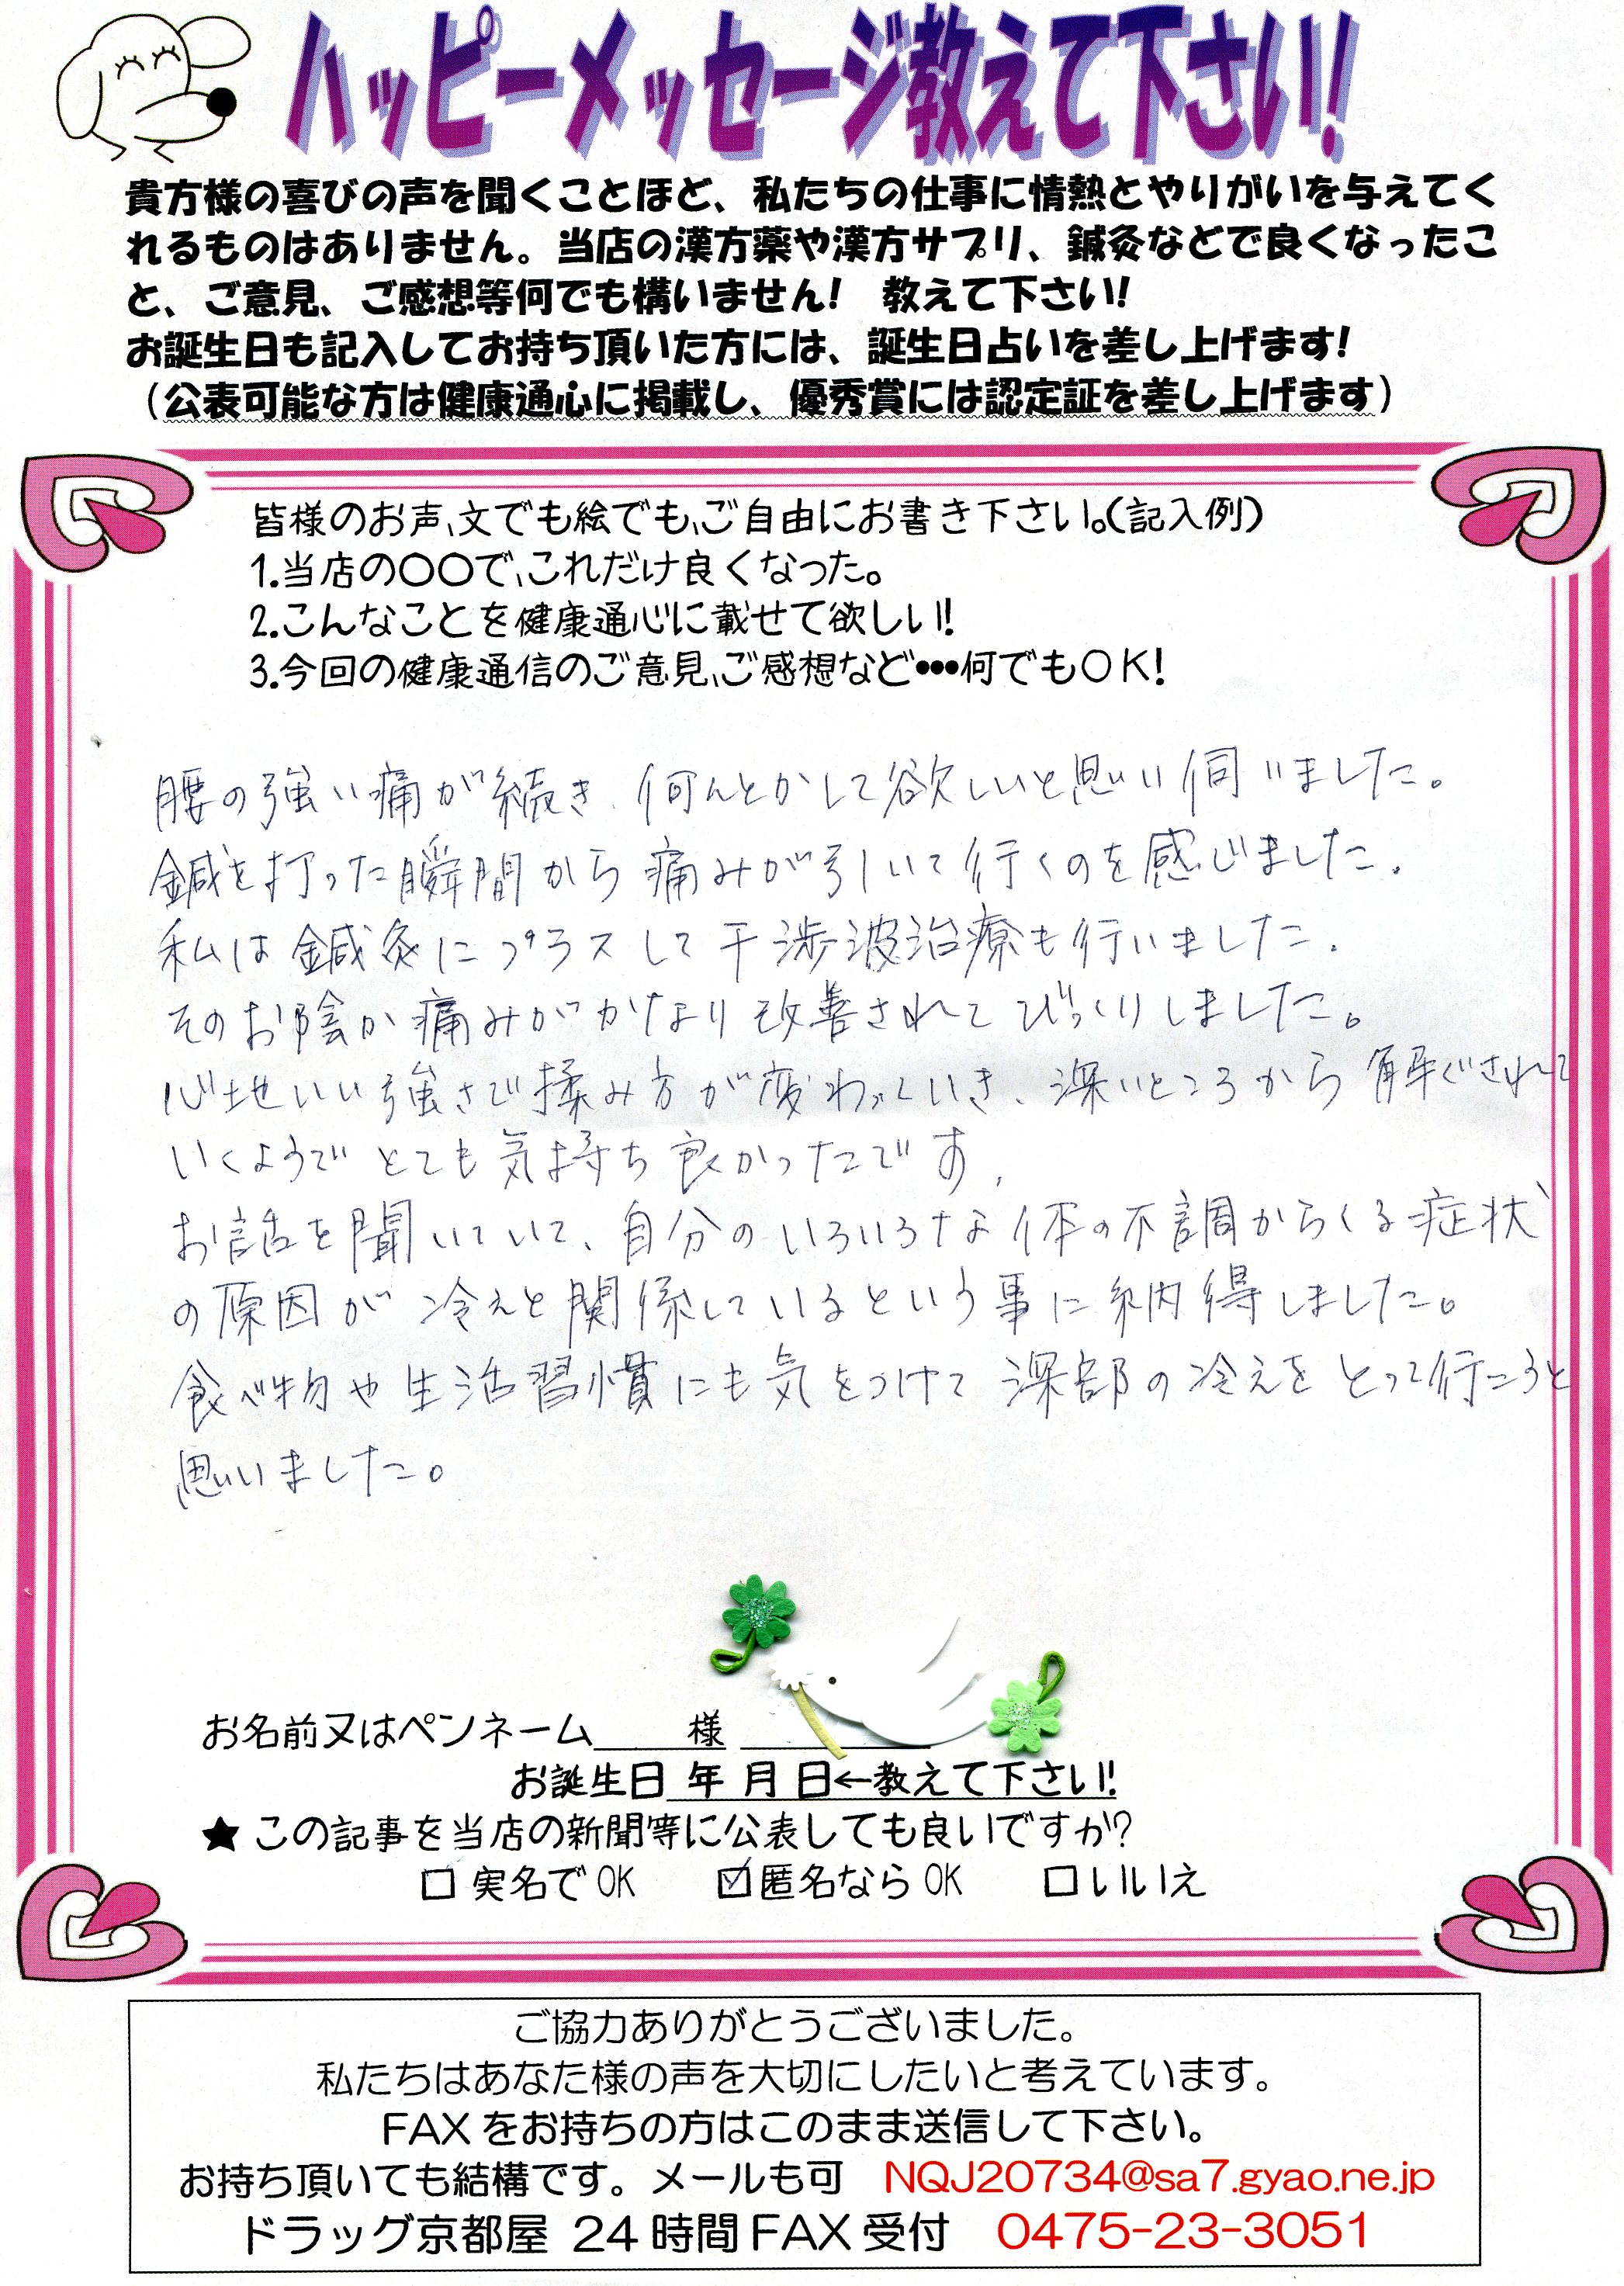 ハッピーメッセージ教えて下さい!
貴方様の喜びの声を聞くことほど、私たちの仕事に情熱とやりがいを与えてく
れるものはありません。当店の漢方薬や漢方サプリ、鍼灸などで良くなったこ
と、ご意見、ご感想等何でも構いません! 教えて下さい!
お誕生日も記入してお持ち頂いた方には、誕生日占いを差し上げます!
(公表可能な方は健康通心に掲載し、優秀賞には認定証を差し上げます)
皆様のお声、文でも絵でも、ご自由にお書き下さい。(記入例)
1.当店の〇〇で、これだけ良くなった。
2.こんなことを健康通心に載せて欲しい!
3.今回の健康通信のご意見、ご感想など•••何でもOK!
腰の強い痛が続き、何んとかして欲しいと思い伺いました。
鍼を打った瞬間から痛みが引いて行くのを感じました。
私は鍼灸にプラスして干渉波治療も行いました。
そのお陰か痛みがかなり改善されてびっくりしました。
心地いい強さで揉み方が変わっていき、深いところから解ぐされて
いくようでとても気持ち良かったです。
お話を聞いていて、自分のいろいろな体の不調からくる症状
の原因が冷えと関係しているという事に納得しました。
食べ物や生活習慣にも気をつけて深部の冷えをとって行こうと
思いました。
お名前又はペンネーム 様
お誕生日 年 月 日←教えて下さい!
★この記事を当店の新聞等に公表しても良いですか?
□ 実名でOK ☑匿名ならOK □いいえ
ご協力ありがとうございました。
私たちはあなた様の声を大切にしたいと考えています。
FAXをお持ちの方はこのまま送信して下さい。
お持ち頂いても結構です。メールも可 NQJ20734@sa7.gyao.ne.jp
ドラッグ京都屋 24時間FAX受付 0475-23-3051